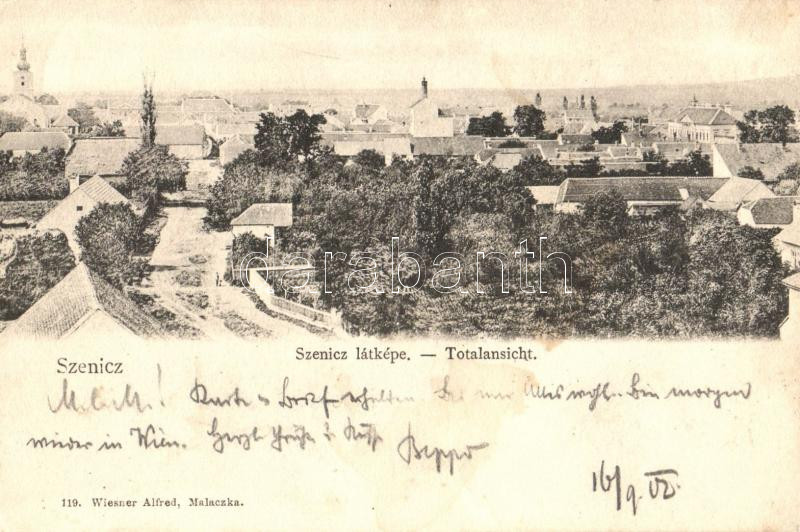 Szenicz
Szenicz látképe. — Totalansicht.
Karte u. Brief erhalten. Bei mir Alles wohl. Bin morgen
wieder in Wien. Herzl. Grüße u. Küsse Beppo
16/9. 02.
119. Wiesner Alfred, Malaczka.
carabanth